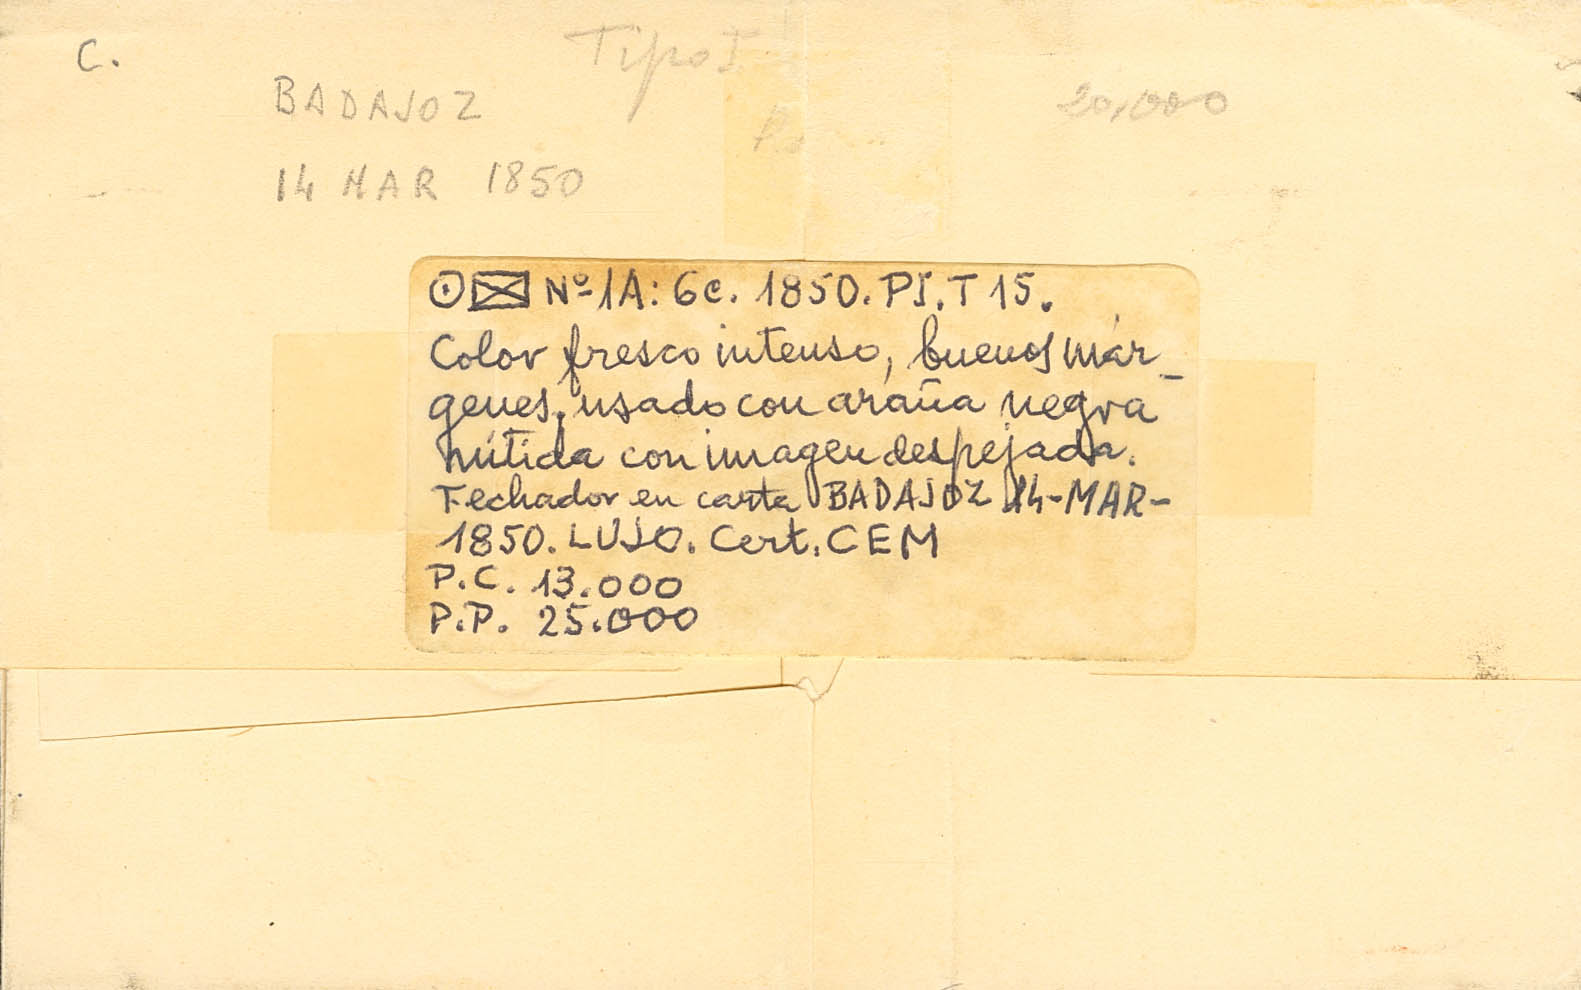 C.
Tipo I.
BADAJOZ
20,000
14 MAR 1850
Nº 1A: 6c. 1850. PI. T 15.
Color fresco intenso, buenos már_
genes, usado con araña negra
nítida con imagen despejada.
Fechador en carta BADAJOZ 14-MAR-
1850. LUJO. Cert. CEM
P.C. 13.000
P.P. 25.000